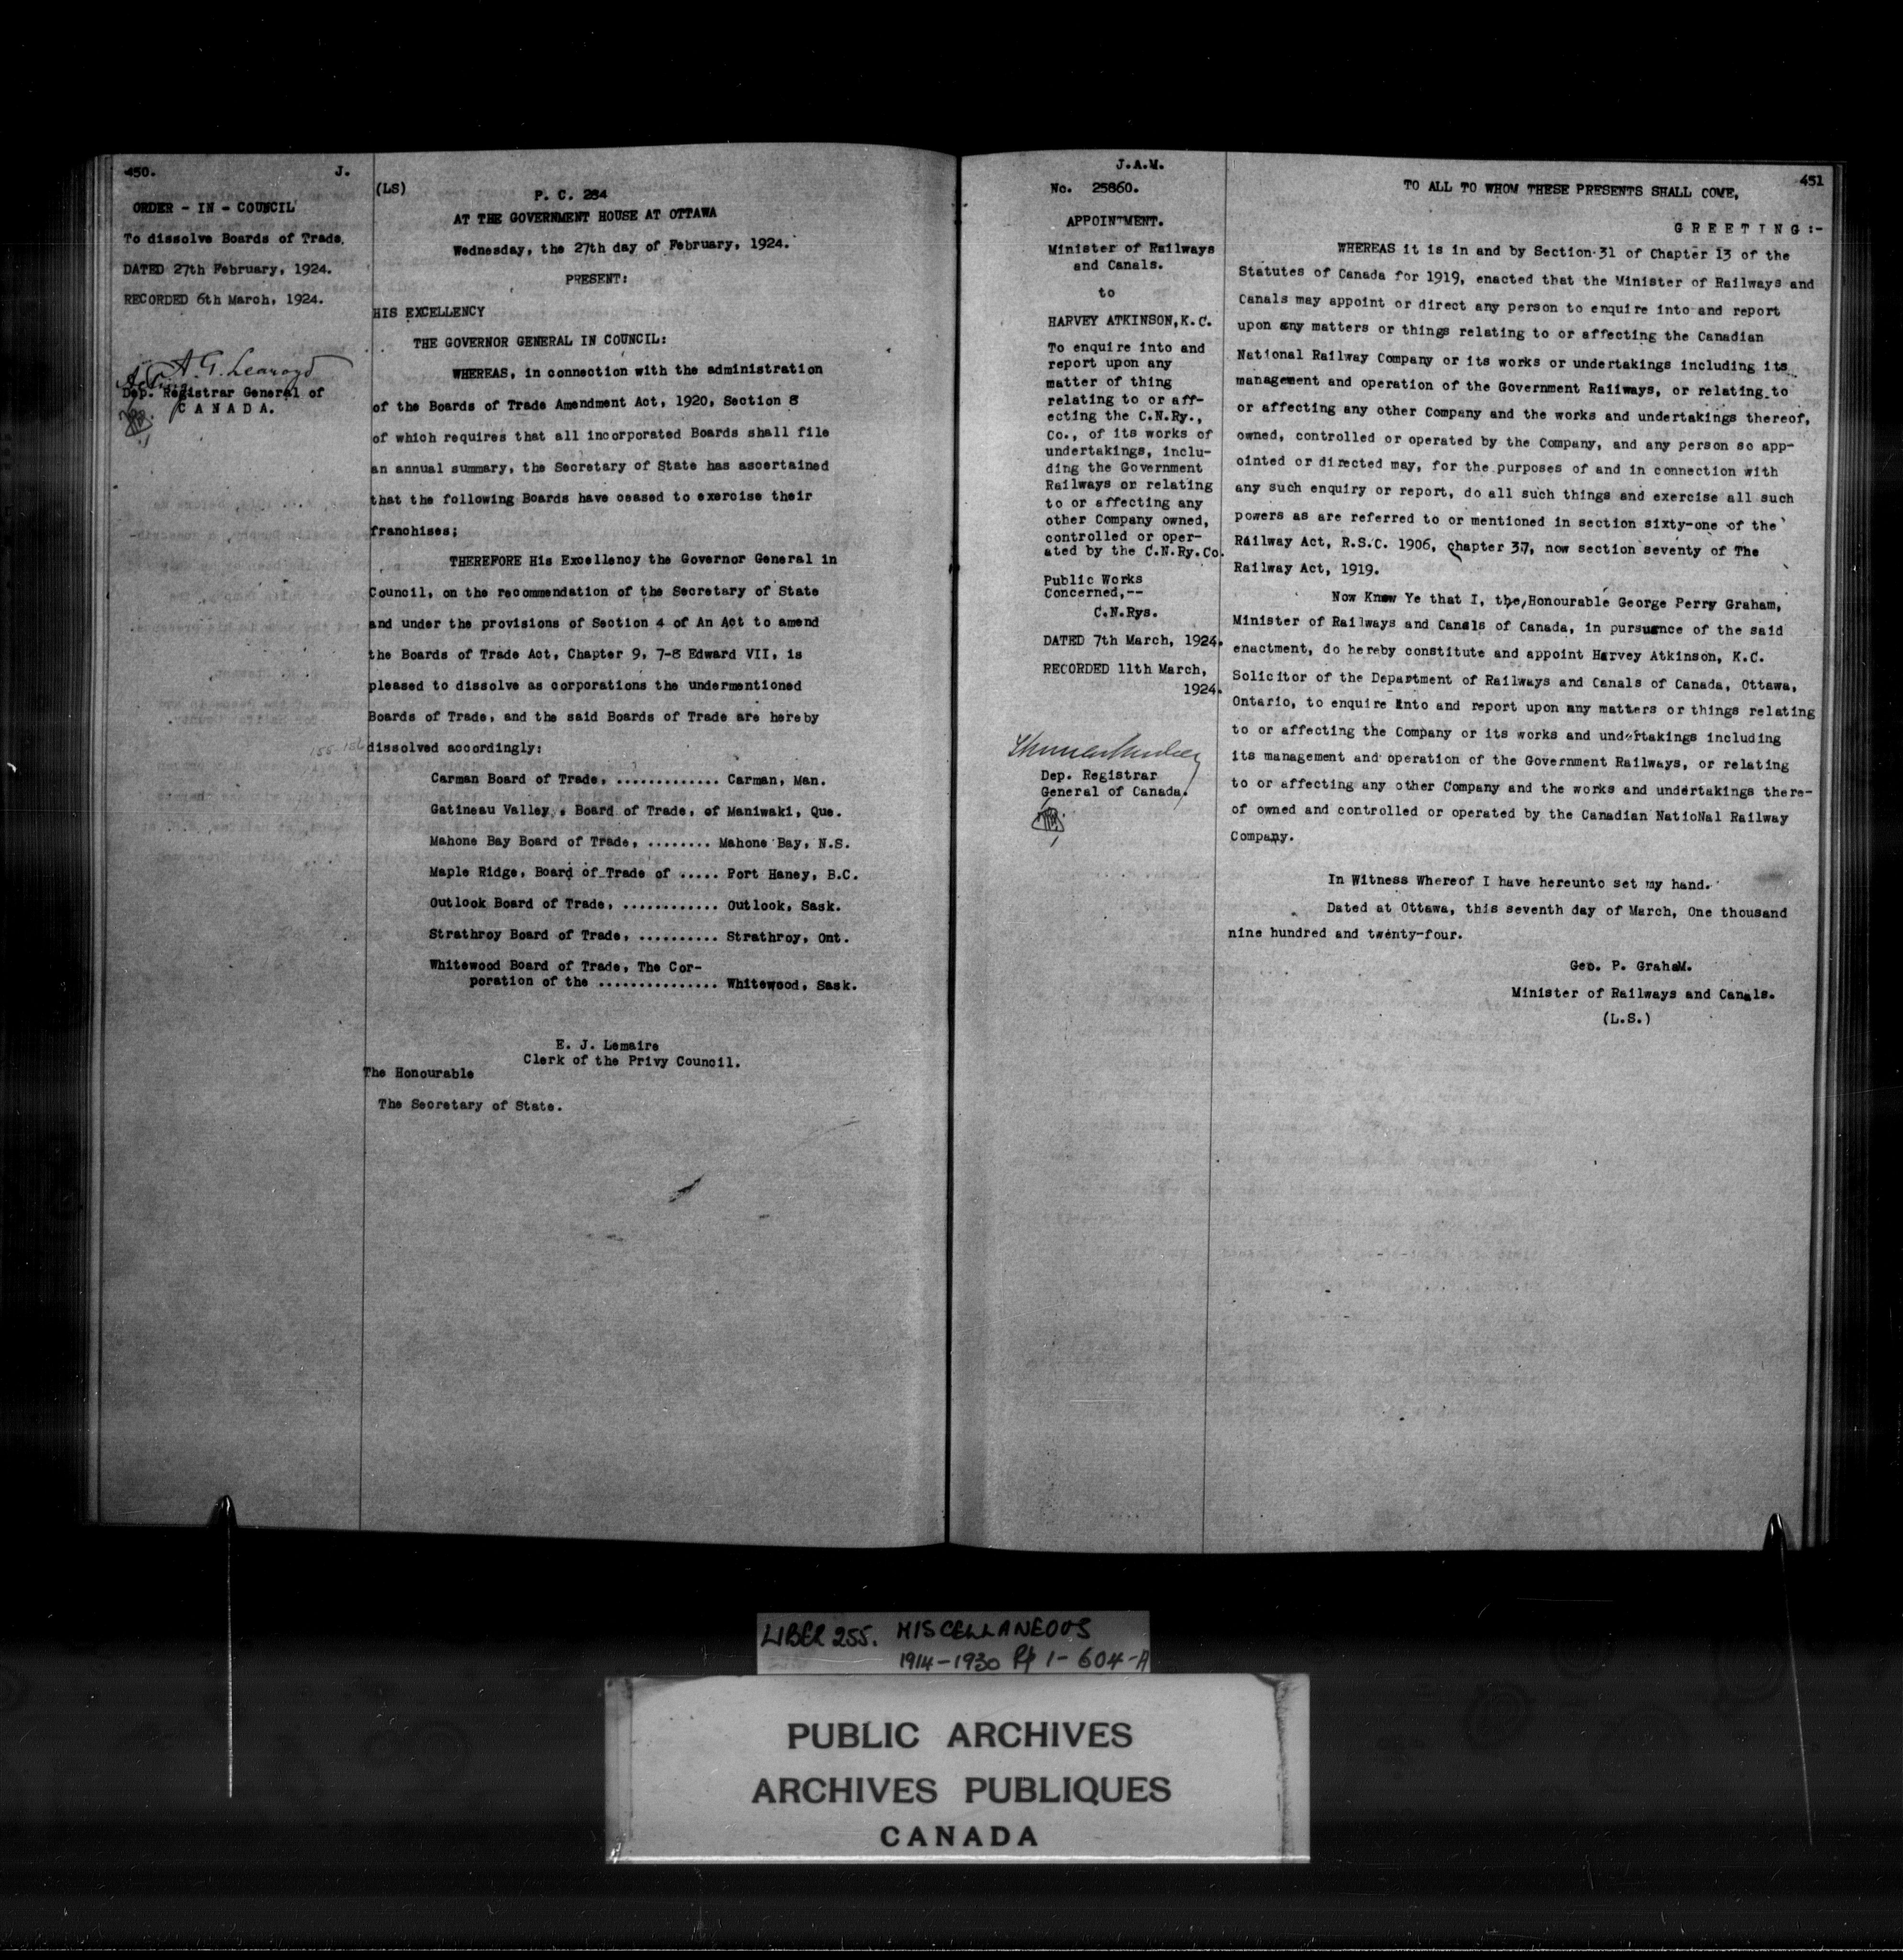 450.
J.
ORDER - IN - COUNCIL
To dissolve Boards of Trade.
DATED 27th February, 1924.
RECORDED 6th March, 1924.
A. G. Learoyd
Dep. Registrar General of
C A N A D A.
(LS)
P. C. 284
AT THE GOVERNMENT HOUSE AT OTTAWA
Wednesday, the 27th day of February, 1924.
PRESENT:
HIS EXCELLENCY
THE GOVERNOR GENERAL IN COUNCIL:
WHEREAS, in connection with the administration
of the Boards of Trade Amendment Act, 1920, Section 8
of which requires that all incorporated Boards shall file
an annual summary, the Secretary of State has ascertained
that the following Boards have ceased to exercise their
franchises;
THEREFORE His Excellency the Governor General in
Council, on the recommendation of the Secretary of State
and under the provisions of Section 4 of An Act to amend
the Boards of Trade Act, Chapter 9, 7-8 Edward VII, is
pleased to dissolve as corporations the undermentioned
Boards of Trade, and the said Boards of Trade are hereby
dissolved accordingly:
Carman Board of Trade, ............. Carman, Man.
Gatineau Valley, Board of Trade, of Maniwaki, Que.
Mahone Bay Board of Trade, ........ Mahone Bay, N.S.
Maple Ridge, Board of Trade of ..... Port Haney, B.C.
Outlook Board of Trade, ............ Outlook, Sask.
Strathroy Board of Trade, .......... Strathroy, Ont.
Whitewood Board of Trade, The Cor-
poration of the ............... Whitewood, Sask.
E. J. Lemaire
Clerk of the Privy Council.
The Honourable
The Secretary of State.
J.A.M.
No. 25860.
APPOINTMENT.
Minister of Railways
and Canals.
to
HARVEY ATKINSON,K.C.
To enquire into and
report upon any
matter of thing
relating to or aff-
ecting the C.N.Ry.,
Co., of its works of
undertakings, inclu-
ding the Government
Railways or relating
to or affecting any
other Company owned,
controlled or oper-
ated by the C.N.Ry.Co.
Public Works
Concerned,--
C.N.Rys.
DATED 7th March, 1924.
RECORDED 11th March,
1924.
Dep. Registrar
General of Canada.
451
TO ALL TO WHOM THESE PRESENTS SHALL COME,
G R E E T I N G :-
WHEREAS it is in and by Section 31 of Chapter 13 of the
Statutes of Canada for 1919, enacted that the Minister of Railways and
Canals may appoint or direct any person to enquire into and report
upon any matters or things relating to or affecting the Canadian
National Railway Company or its works or undertakings including its
management and operation of the Government Railways, or relating to
or affecting any other Company and the works and undertakings thereof,
owned, controlled or operated by the Company, and any person so app-
ointed or directed may, for the purposes of and in connection with
any such enquiry or report, do all such things and exercise all such
powers as are referred to or mentioned in section sixty-one of the
Railway Act, R.S.C. 1906, chapter 37, now section seventy of The
Railway Act, 1919.
Now Know Ye that I, the Honourable George Perry Graham,
Minister of Railways and Canals of Canada, in pursuance of the said
enactment, do hereby constitute and appoint Harvey Atkinson, K.C.
Solicitor of the Department of Railways and Canals of Canada, Ottawa,
Ontario, to enquire Into and report upon any matters or things relating
to or affecting the Company or its works and undertakings including
its management and operation of the Government Railways, or relating
to or affecting any other Company and the works and undertakings there-
of owned and controlled or operated by the Canadian NatioNal Railway
Company.
In Witness Whereof I have hereunto set my hand.
Dated at Ottawa, this seventh day of March, One thousand
nine hundred and twenty-four.
Geo. P. GrahaM.
Minister of Railways and Canals.
(L.S.)
LIBER 255. MISCELLANEOUS
1914-1930 Pp 1-604-A
PUBLIC ARCHIVES
ARCHIVES PUBLIQUES
CANADA